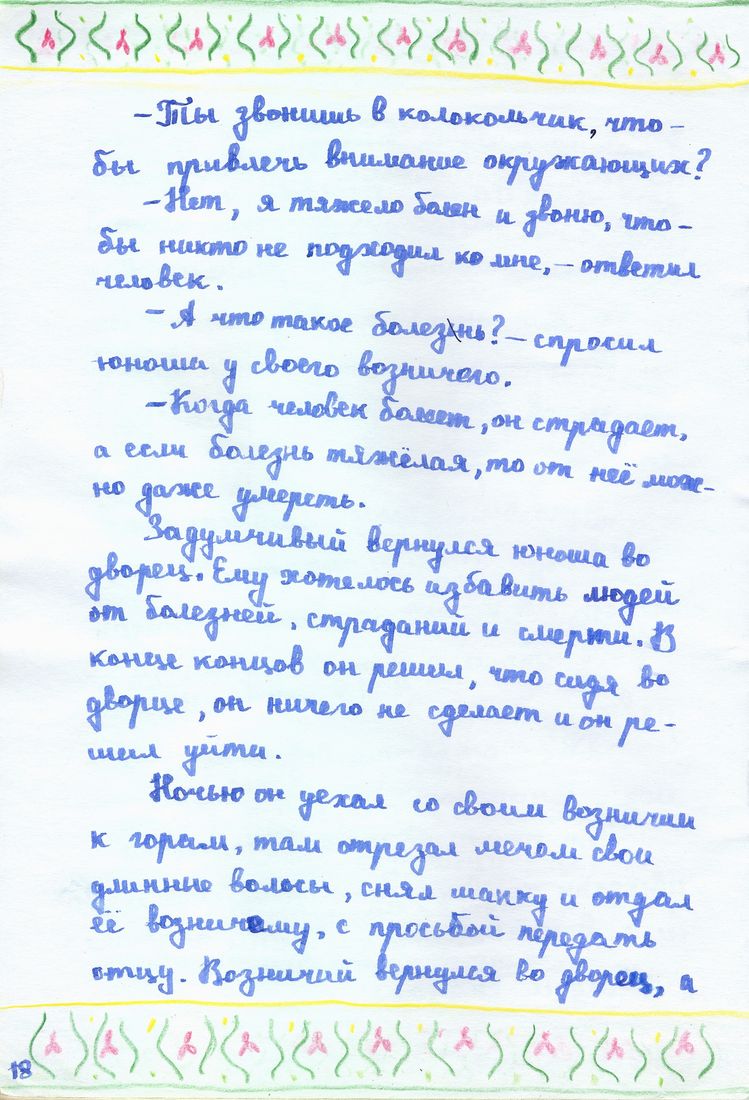 –Ты звонишь в колокольчик, что-
бы привлечь внимание окружающих?
–Нет, я тяжело болен и звоню, что-
бы никто не подходил ко мне,–ответил
человек.
–А что такое болезнь?–спросил
юноша у своего возничего.
–Когда человек болеет, он страдает,
а если болезнь тяжёлая, то от неё мож-
но даже умереть.
Задумчивый вернулся юноша во
дворец. Ему хотелось избавить людей
от болезней, страданий и смерти. В
конце концов он решил, что сидя во
дворце, он ничего не сделает и он ре-
шил уйти.
Ночью он уехал со своим возничим
к горам, там отрезал мечом свои
длинные волосы, снял шапку и отдал
её возничему, с просьбой передать
отцу. Возничий вернулся во дворец, а
18